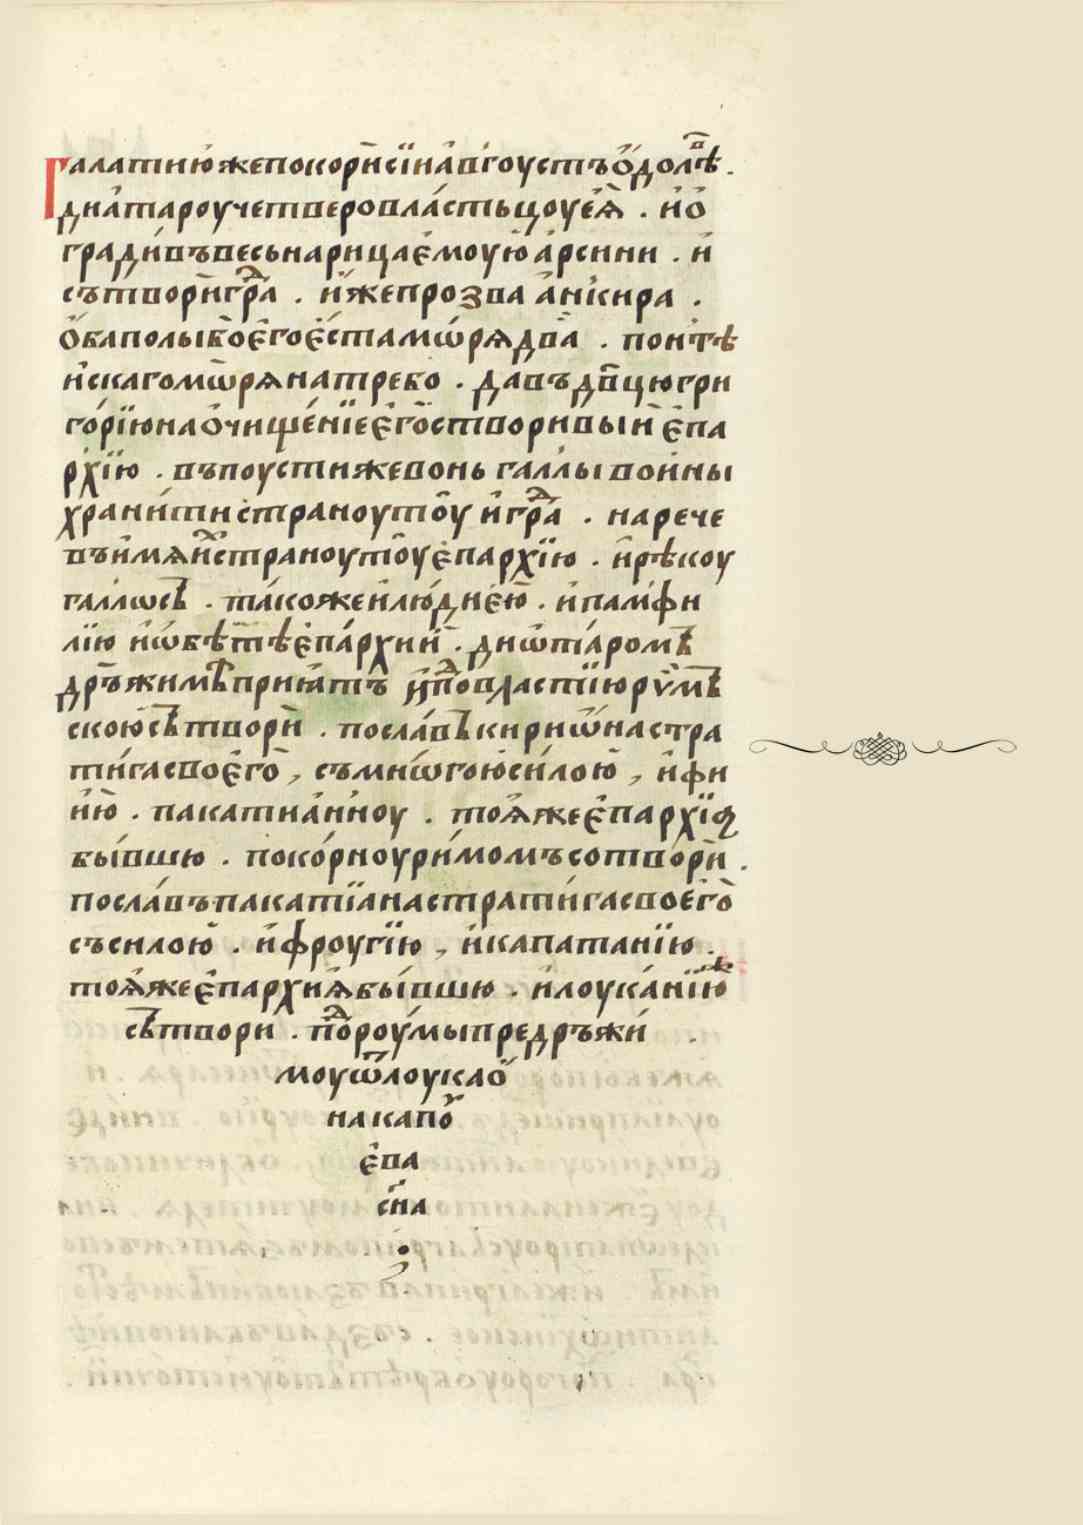 Галатию́ жепокори҃ сїи҆ а҆вгоустъ ѻ҆долⷡ҇ѣ .
дїа҆тароу четверовла́стьцоу еѧ҆̀ . и҆ ѻ҆
гради́въ весь нарица́емоую а҆рсини . и҆
сътвори҆ гра́ⷣ . и҆́же прозва а҆нкира .
ѻ҆́баполы бо̀ е҆го е҆́ста мѡ́рѧ два̀ . понтѣ
и҆скаго мѡ̀рѧ натребо . давъ дв҃цю гри
го́рїю на ѻ҆чище́нїе е҆гѡ̀ створивыи҆ е҆па
рхїю . въпоустиже вонь галлы вои́ны
храни́ти страноу то̑у и҆ гра́ⷣ . нарече
въ и҆мѧ и҆ⷯ страноу то̑у е҆пархїю . и҆ рѣкоу
галлѡсъ . та́коже и҆ лю́дїею̀ . и҆ пам́фи
лїю и҆ ѡбѣ тѣ е҆па́рхии҆ . диѡта́ромъ
дръжимѣ прїи́атъ и҆ поⷣ властїию ри́мъ
скою сътвори҆ . посла́въ кириѡ́на стра
ти́га свое҆го̀ , съ мнѡ́гою си́лою , и҆ фи
и҆ю̀ . пакатиа́нноу . тоѧ҆́же е҆пархїѧ
бы́вшю . поко́рноу ри́момъ сотвори҆ .
посла́въ пакатїана страти́га свое́го̀
съ силою̀ . и҆ фроугїю , и҆ капатанїю .
тоѧ҆́же е҆пархиѧ бы́вшю . и҆ лоука́нїюⷤ
сътвори . поⷣ роу́мы предръжи́ .
моу ѿ лоукаѻ҆̀
на капо́ᲂу
е҆па
сн҃а